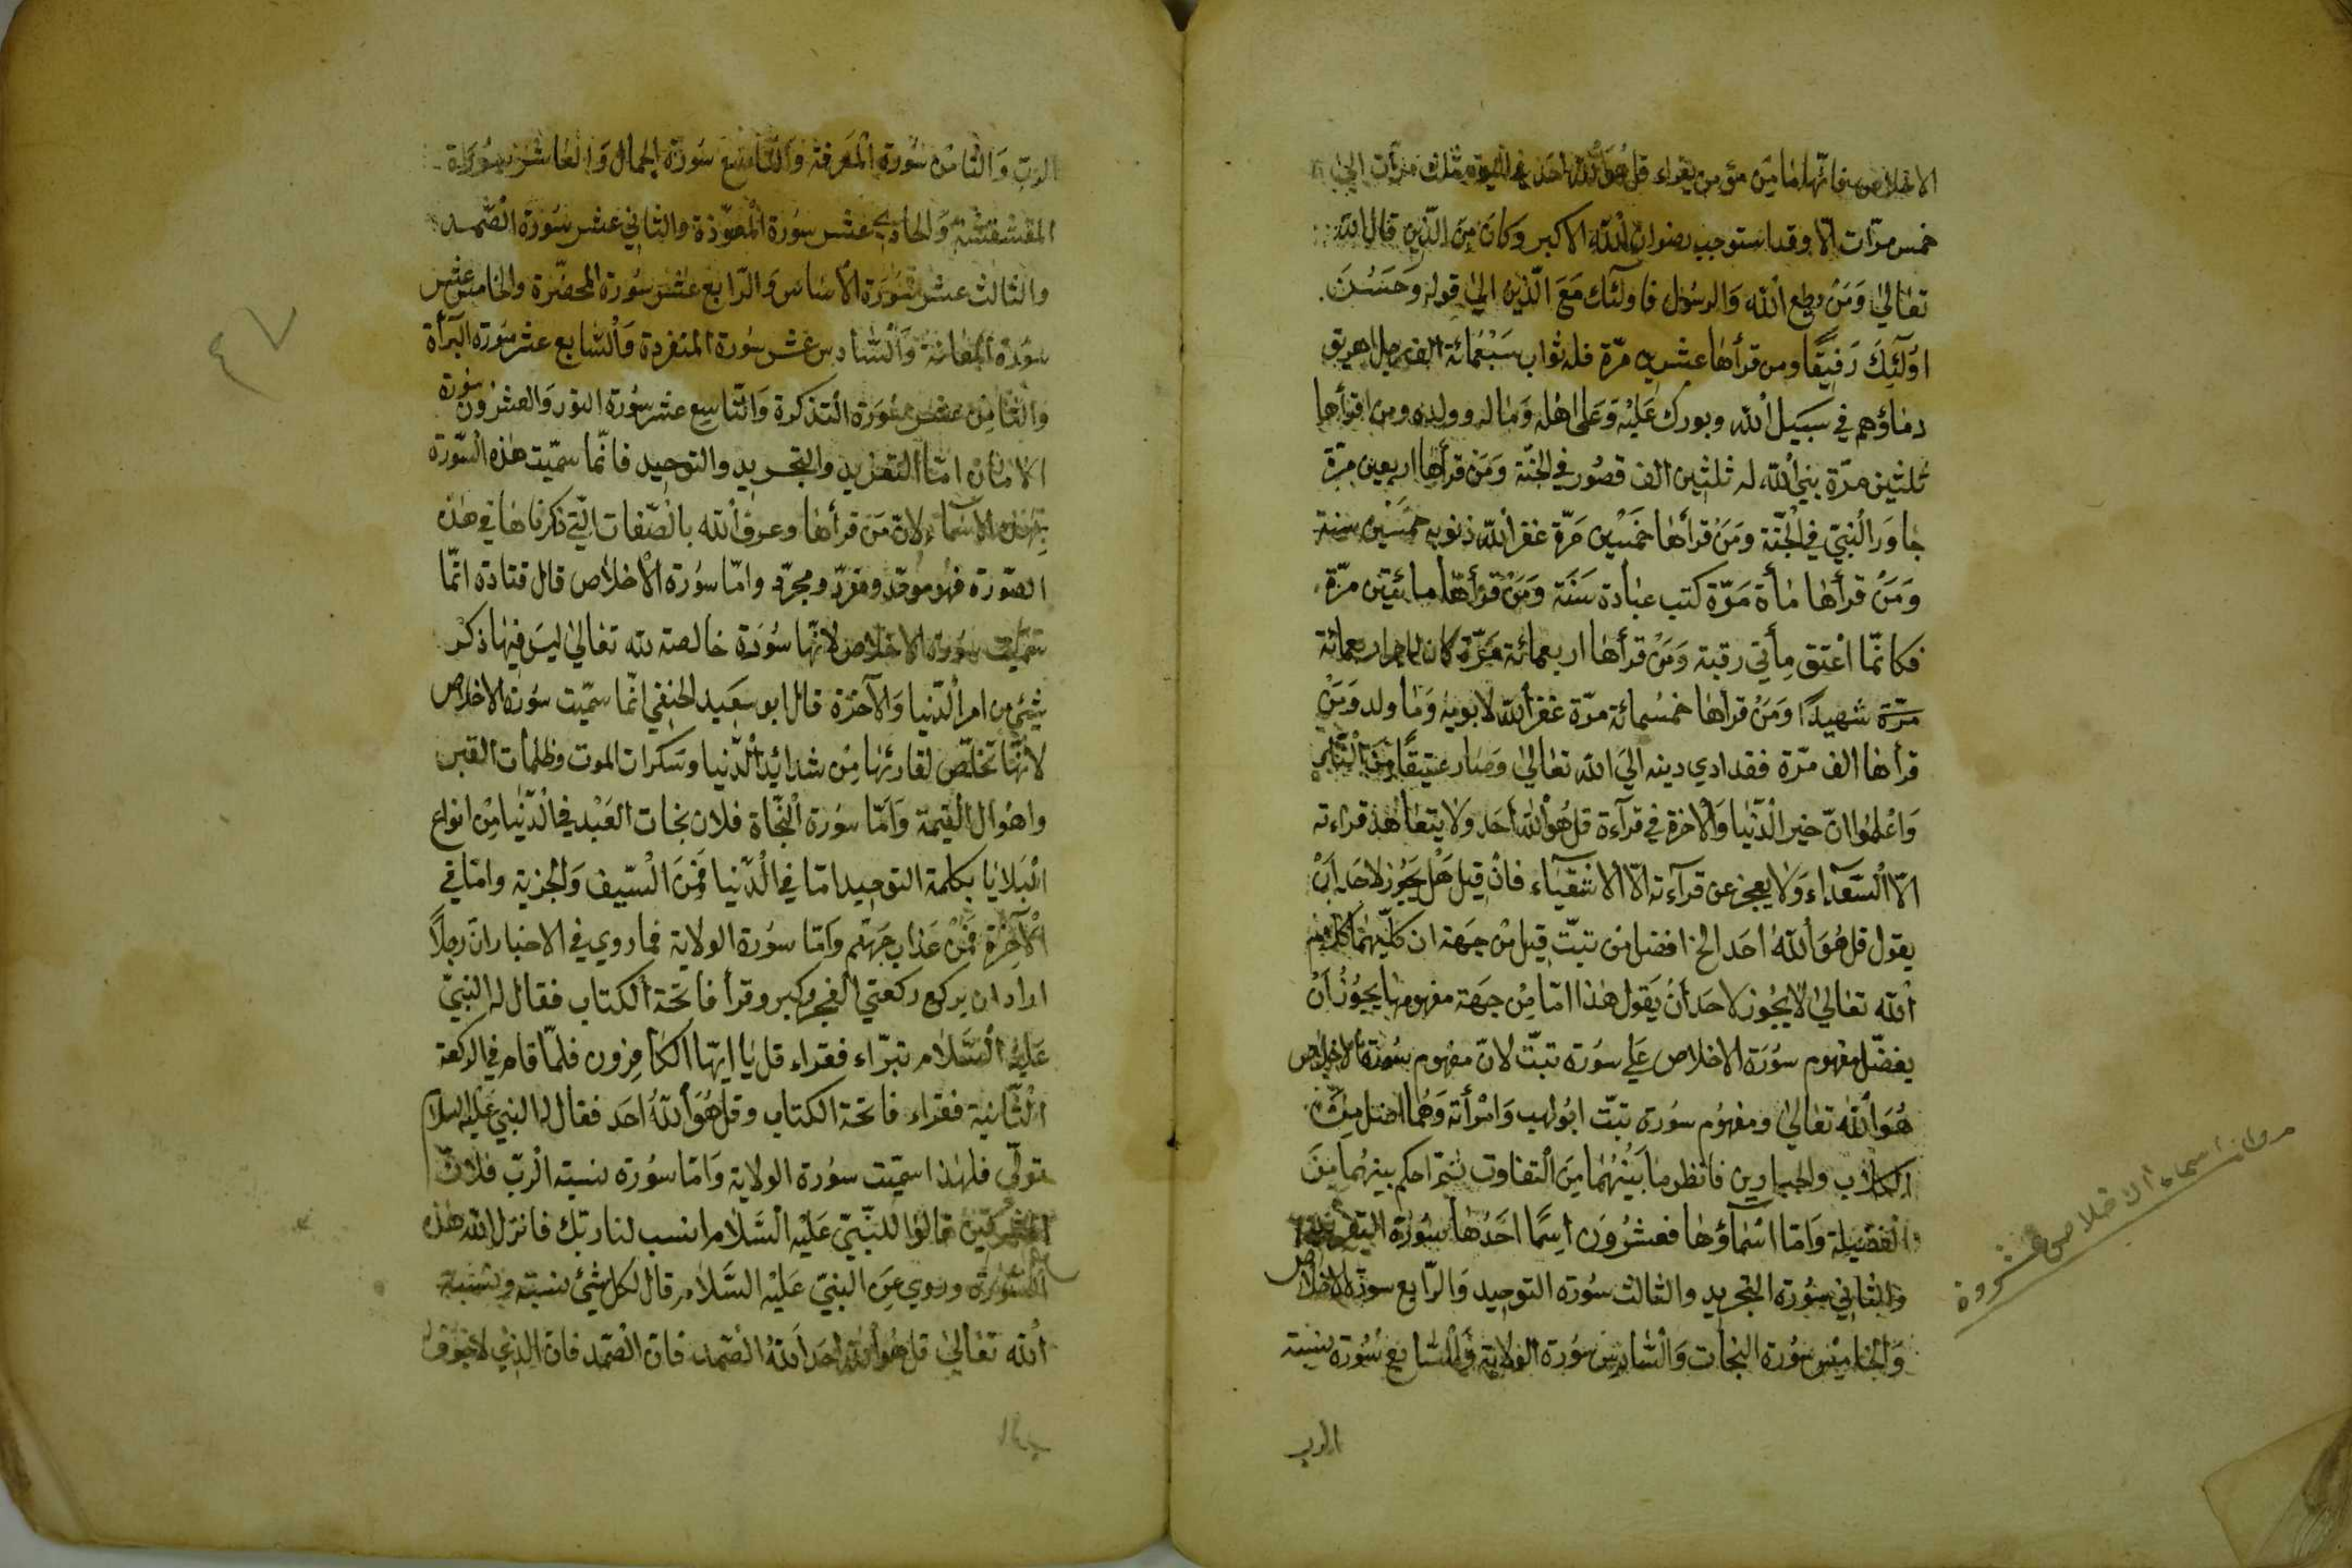 الاخلاص فانها ما من مؤمن يقراء قل هو الله احد في اليوم ثلث مرات الى
خمس مرّات الّا وقد استوجب رضوان الله الاكبر وكان من الّذين قال الله
تعالى وَمَن يطع الله وَالرسول فاولئك مَعَ الّذين الى قوله وَحَسُنَ
اولَئِكَ رَفيقًا ومن قرأها عشرين مرّة فله ثواب سَبْعمائة الف رجل اهريق
دماؤهم في سَبيل الله وبورك عَليْه وَعَلى اهله وَماله وولده ومن اقرأها
ثلثين مرّة بني الله له ثلثين الف قصُور في الجنّة وَمَن قرأها اربعين مرّة
جاوَر النبيّ في الجنّة ومَنْ قرأها خَمسْين مَرّة غفر الله ذنوبه خمسين سنة
وَمَنْ قرأها مأة مَرّة كتب عبادة سَنَة وَمَنْ قرأها مائتين مرّة
فكانّما اعْتق مأتي رقبة وَمَنْ قرأها اربعمائة مَرّة كان له اجر اربعمائة
مرّة شهيدًا وَمَنْ قرأها خمسُمائة مرّة غفر الله لابويه وَما ولد وَمَنْ
قرأها الف مّرة فقد ادي دينه الىَ الله تعالى وَصَار عتيقًا مِنَ النّار
وَاعْلمُوا انّ خير الدّنيا وَالاخرة في قرآءة قل هُو الله أحَد وَلا يتعاهد قراءته
الّا السّعدآء وَلا يعجز عن قرآءته الّا الاشقيَاء فانْ قيل هَل يَجُوز لاحَد اَنْ
يقول قل هُوَ اللهُ احَد الخ افضل من تبّت قيل مْن جهَة ان كلَيْهمَا كلام
الله تعالى لا يجُوز لاحَد أنْ يَقول هذا امّا مِنْ جهَة مفهومها يجُوزُ اَنْ
يفضّل مفهوم سُوَرة الاخلاص على سورة تبّت لانّ مفهوم سُورة الاخلاص
هُوَ الله تعالى ومفهُوم سورة تبّت ابُو لهب وَامْرأته وَهُما افضل مِنْ
الكلاب والخبازير فانظر ما بَيْنهُمَا مِنَ التفاوت ثمّ احكم بينهُما مِنَ
الفضيلة وَامّا اسْمآؤها فعشْرُوَن اسِمًا احَدُها سُورَة التفريد
والثاني سُورة التجريد والثالث سُورة التوحِيد وَالرّابع سورة الاخلاص
وَالخامِس سُورة النجات وَالسّادِس سُورة الولاية وَالسّابع سُورة نسبة
الرب
مروانة اسماء الاخلاص عشرون
الرب وَالثامن سُورة المَعرفة وَالتّاسع سُورة الجمال وَالعَاشر سُورة
المقشقشة وَالحادي عشر سورة المعوّذة والثاني عشر سُورة الصّمد
والثالث عشر سُورَة الاسَاس وَالرّابع عَشر سُورة المحضّرة والخامس عشر
سُورة المعانة وَالسّادس عَشر سُورة المنفردة وَالسّابع عشر سُورة البرأة
والثامِن عشر سُورَة التذكرة وَالتّاسِع عشر سُورة النور وَالعشرُون سُورة
الامان امّا التفريد والتجريد والتوحِيد فانّما سمّيت هذه السّورة
بهٰذه الاسْمَاء لانّ مَن قرأها وعرف الله بالصّفات الّتي ذكرناها في هذه
الصورة فهُو موحّد ومفرّد ومجرّد وامّا سُورة الاخلاص قال قتادة انمّا
سمّيت سُورة الاخلاص لانهّا سُورَة خالصة لله تعالى ليسَ فِيها ذكر
شيْئ من امر الدّنيا وَالآخرَة قال ابو سَعِيد الحنفي انّما سمّيت سُورة الاخلاص
لانّهَا تخلّص لقارئهَا مِن شدائد الدّنيا وسَكرات الموت وظلمات القبر
واهوَال القيمة وَاَمّا سوُرة النجّاة فلان نجَات العَبْد في الدّنيا مِنْ انواع
البَلايا بكلمة التوحيد امّا في الدّنيا فمِنَ السّيف وَالجزية وامّا في
الآخِرة فمَنْ عَذاب جهَنّم وَامّا سوُرة الولاية فما روي في الاخبار انّ رجلاً
اراد ان يركع ركعتي الفجر وكبر وقرأ فاتحَة الكتاب فقال له النبيّ
عَليْه السَّلام تبرّاء فقراء قل يا ايّها الكافِرون فلمّا قام في الركعة
الثّانية فقراء فاتحَة الكتاب وقل هُوَ اللهُ احَد فقال له النبي عَليْه السلام
تولّى فلهٰذا سمّيت سُورة الولاية وَامّا سُورة نسبة الرّب فلانّ
المشركين قالوا للنبّي عَليْه السّلام انسب لنا ربّك فانزل الله هذه
السّورة وروي عَن النبيّ عَليْه السَّلام قال لكل شيْئ نسبة ونسبة
الله تعالى قل هُو الله احَد اللهُ الصّمد فان الصّمد فان الذي لا جوف
٤٧